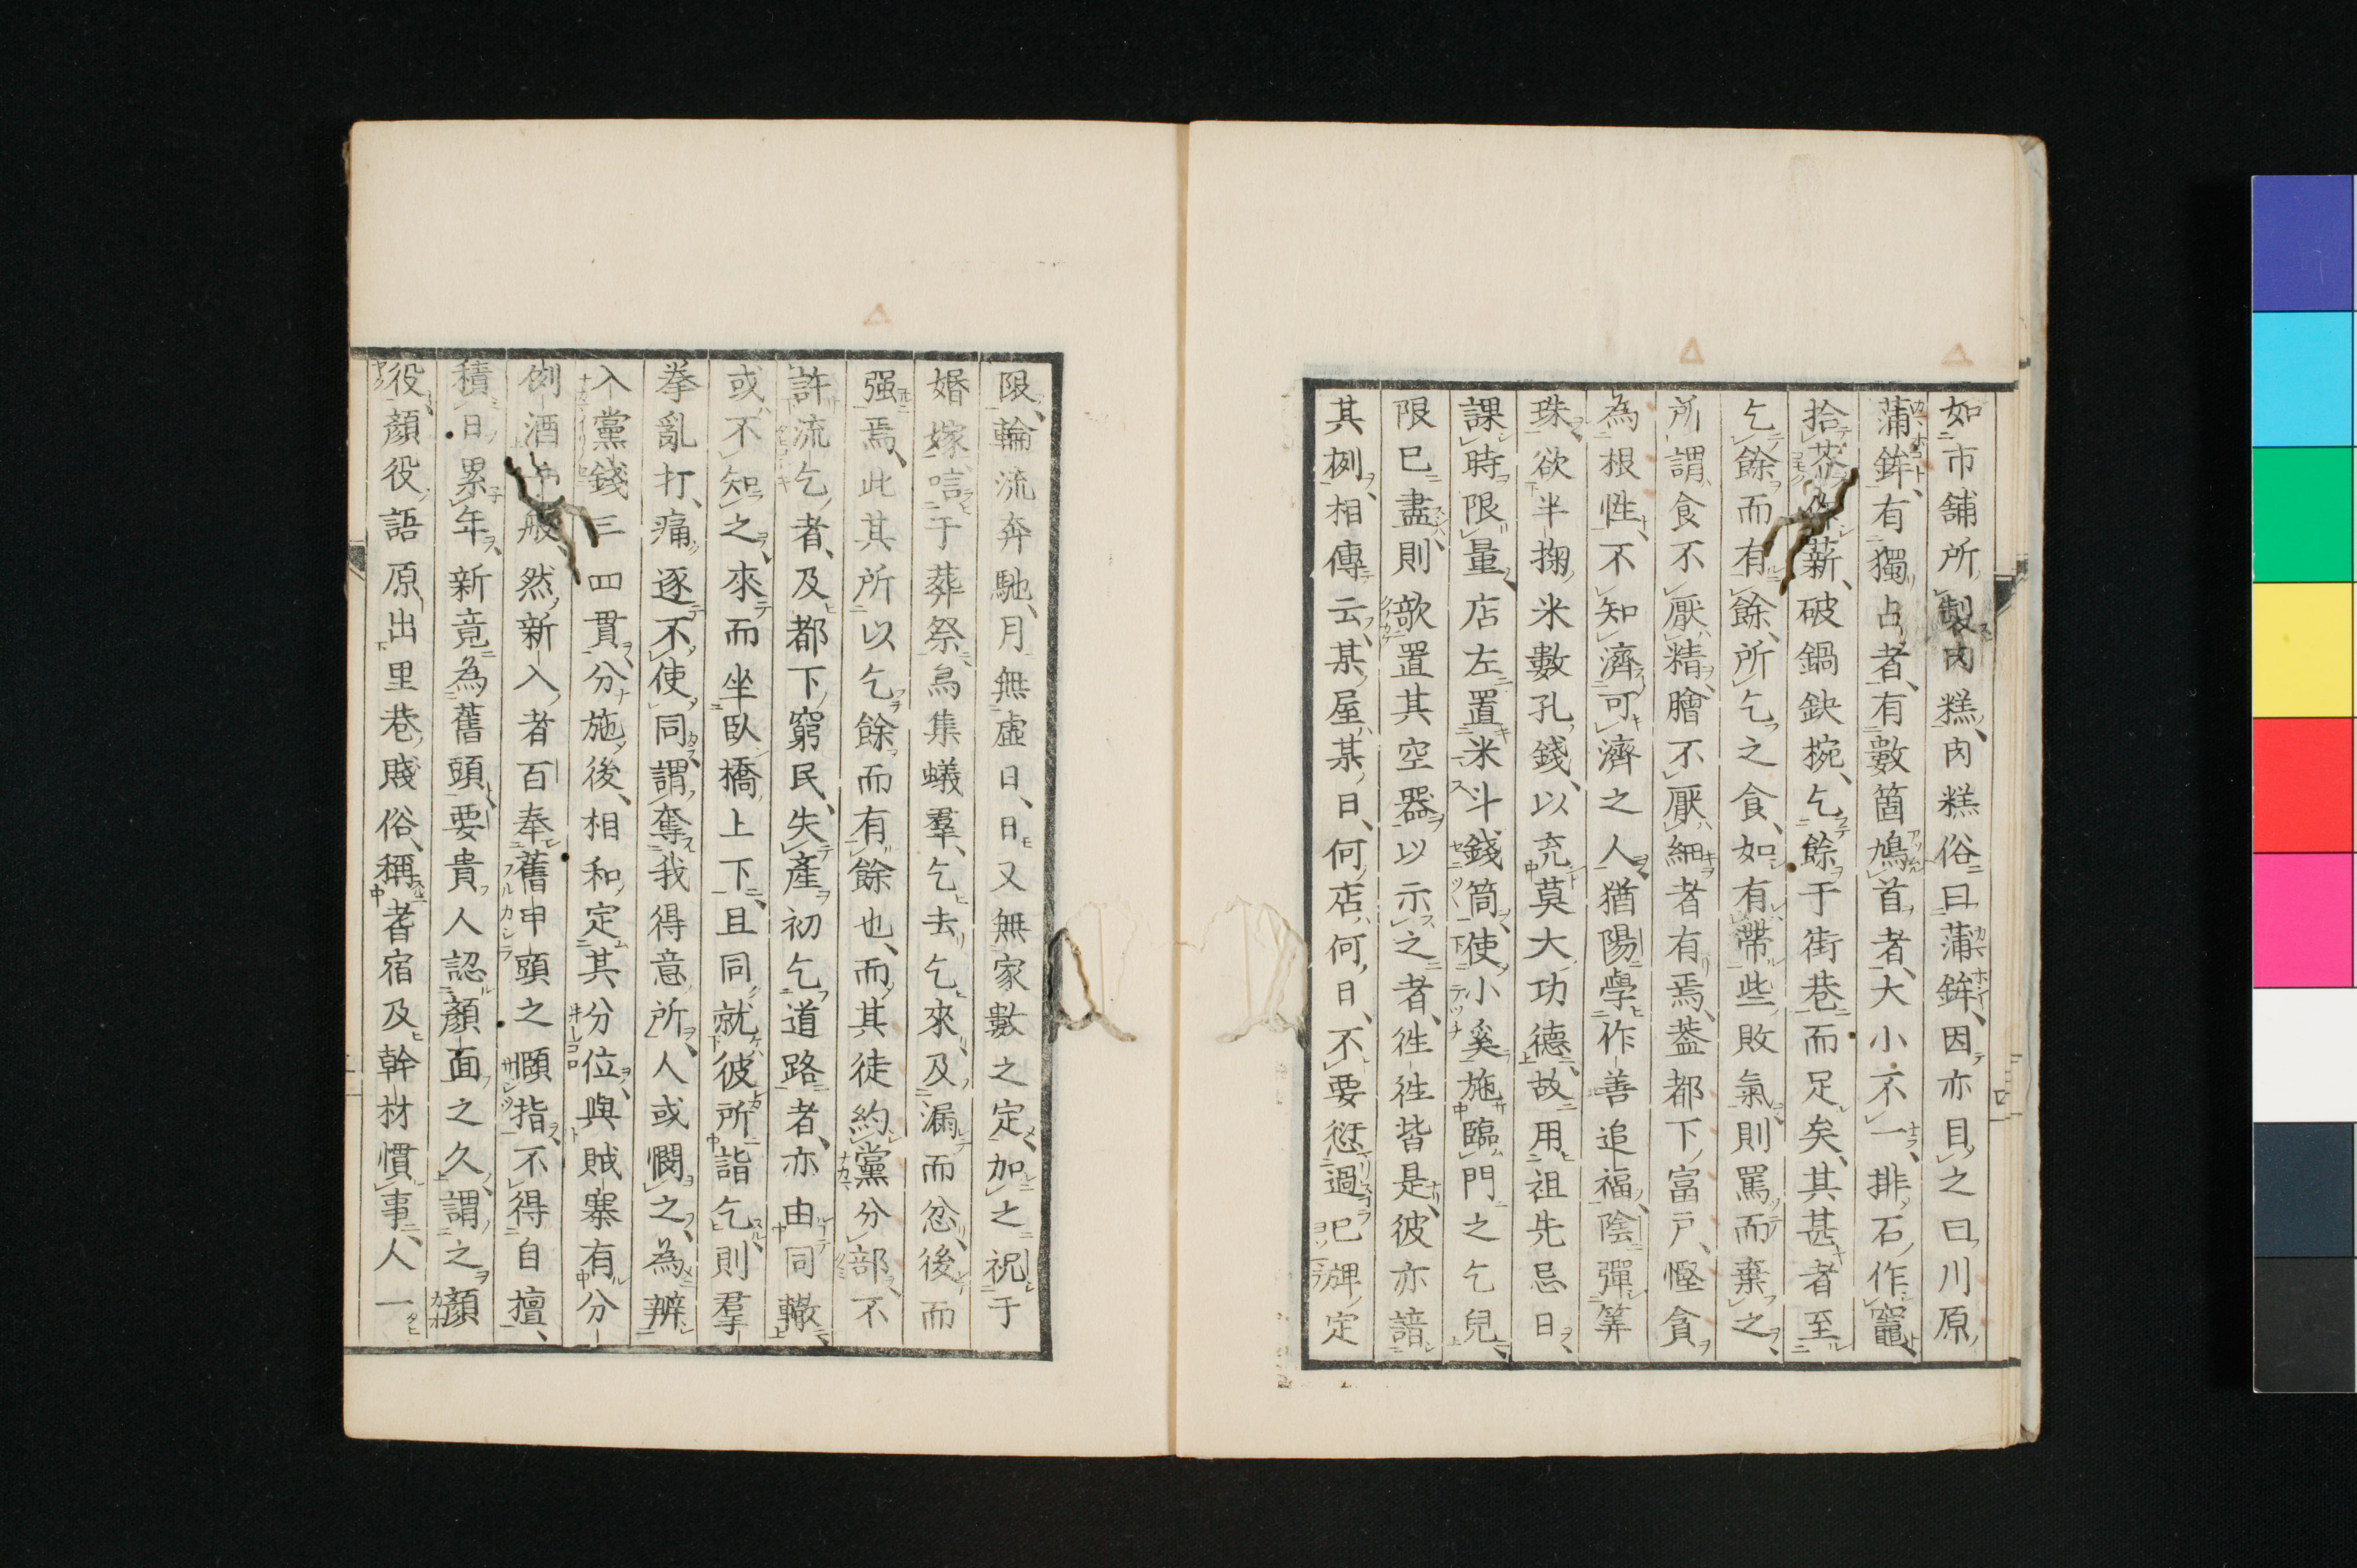 如市舖所製肉糕、肉糕俗曰蒲鉾、因亦目之曰川原
蒲鉾、有獨占者、有數箇鳩首者、大小不一、排石作竈、
拾薪、破鍋鈌椀、乞餘于街巷而足矣、其甚者至
乞餘而有餘、所乞之食、如有帶些敗氣、則罵而棄之、
所謂食不厭精、膾不厭細者有焉、葢都下富戸、慳貪
為根性、不知濟可濟之人、猶陽學作善追福、陰彈筭
珠、欲半掬米數孔錢、以充莫大功德、故用祖先忌日、
課時限量、店左置米斗錢筒、使小奚施臨門之乞兒、
限已盡則歆置其空器以示之者、徃徃皆是、彼亦諳
其例、相傳云、某屋某日、何店何日、不要愆過、已牌定
限、輪流奔馳、月無虛日、日又無家數之定、加之祝于
婚嫁、唁于葬祭、鳥集蟻羣、乞去乞來、及漏而忿、後而
强焉、此其所以乞餘而有餘也、而其徒約黨分部、不
許流乞者、及都下窮民、失產初乞道路者、亦由同轍、
或不知之、來而坐臥橋上下、且同就彼所詣乞、則羣
拳亂打、痛逐不使同、謂奪我得意所、人或憫之、為辨
入黨錢三四貫、分施後、相和定其分位、與賊寨有分
例酒一般、然新入者百奉舊申頭之頤指、不得自擅、
積日累年、新竟為舊頭、要貴人認顏面之久、謂之顏
役、顏役語原出里巷賤俗、稱耆宿及幹材慣事人一